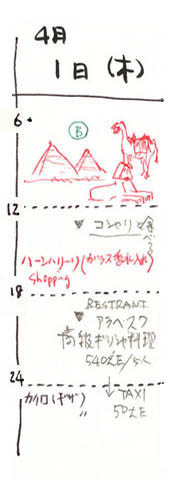 4月
1日(木)
6
B
12
▼ コシャリを食べる
ハーンハリーリ(ガラス香水入れ)
Shopping
18
RESTRANT
▼ アラベスク
高級ギリシャ料理
540£E/5人
24
↓ TAXI
カイロ(ギザ) 50£E
〃